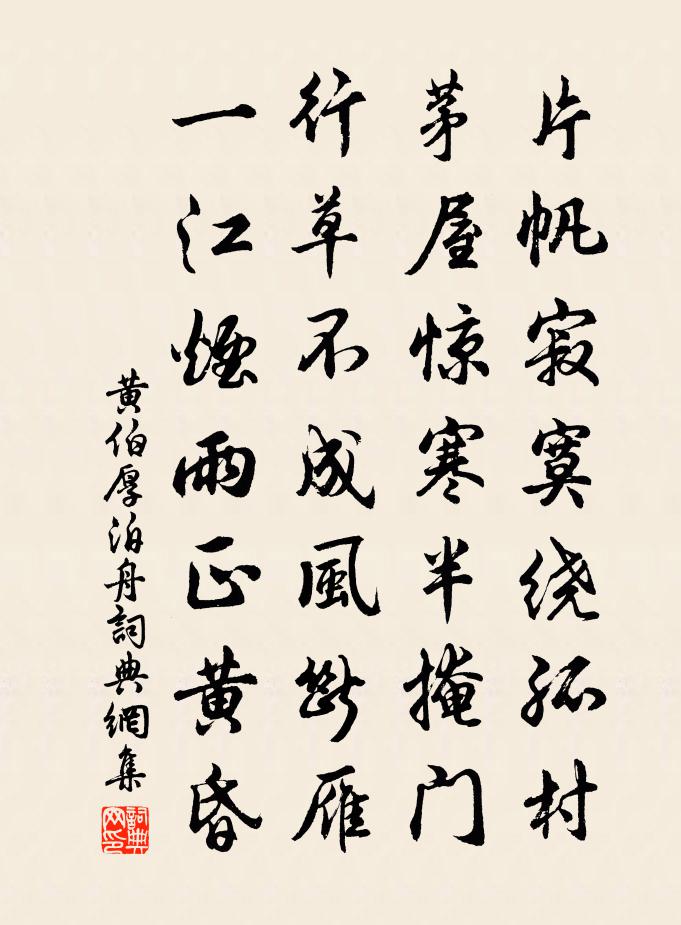 片帆寂寞绕孤村
茅屋惊寒半掩門
行草不成風斷雁
一江煙雨正黄昏
黄伯厚泊舟詞典網集
詞典网印